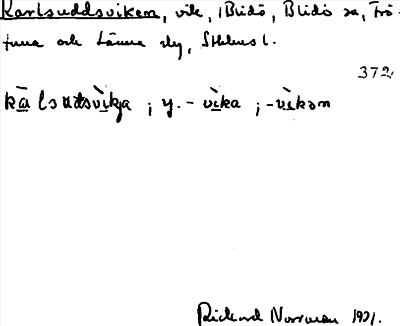 Karlsuddsviken, vik, i Blidö, Blidö sn, Frö-
tuna och Länna slg, Sthlms l.
372
kālsuddsvìkja ; y. - vìka ; -vìkən
Rickard Norrman 1921.